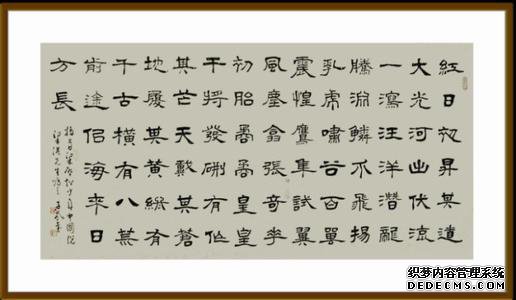 紅日初昇其道
大光河出伏流
一瀉汪洋潛龍
騰淵鱗爪飛揚
乳虎嘯谷百獸
震惶鷹隼試翼
風塵翕張奇
初胎矞矞皇皇
干將發硎有作
其芒天戴其蒼
地履其黃縱有
千古橫有八荒
前途似海來日
方長
少年中國說
织梦内容管理系统
DEDECMS.COM